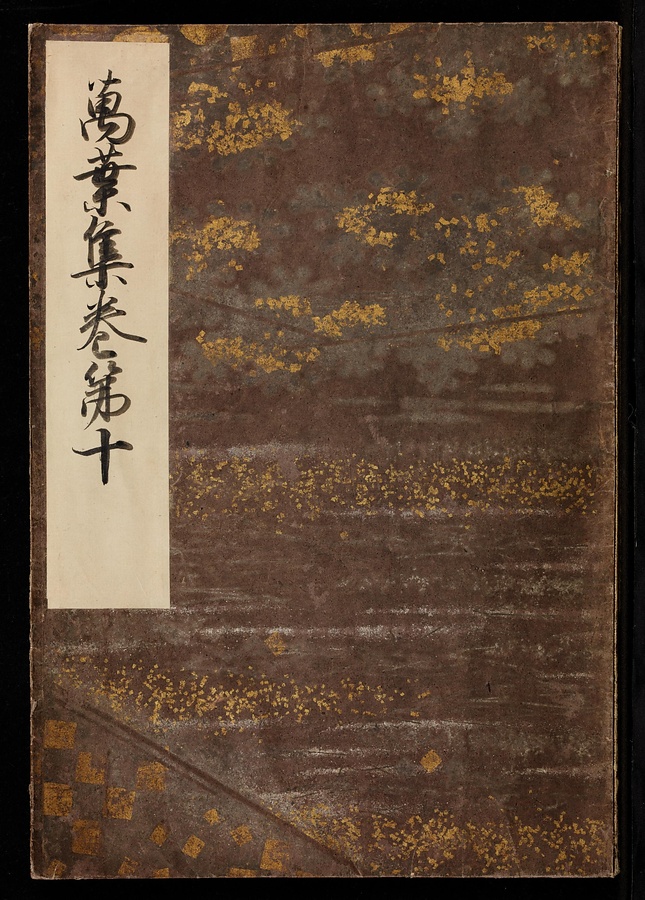 萬葉集巻第十